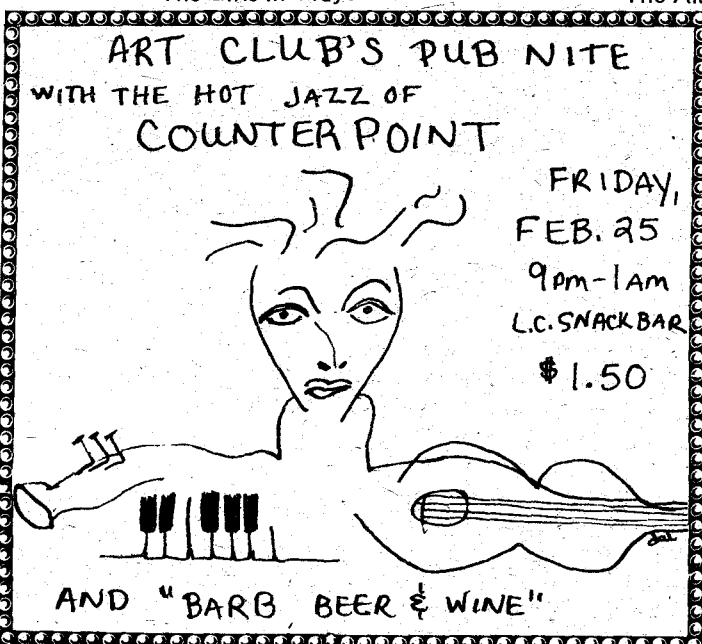 ART CLUB'S PUB NITE
WITH THE HOT JAZZ OF
COUNTERPOINT
FRIDAY,
FEB. 25
9pm-1am
L.C. SNACKBAR
$1.50
AND "BARB BEER & WINE"